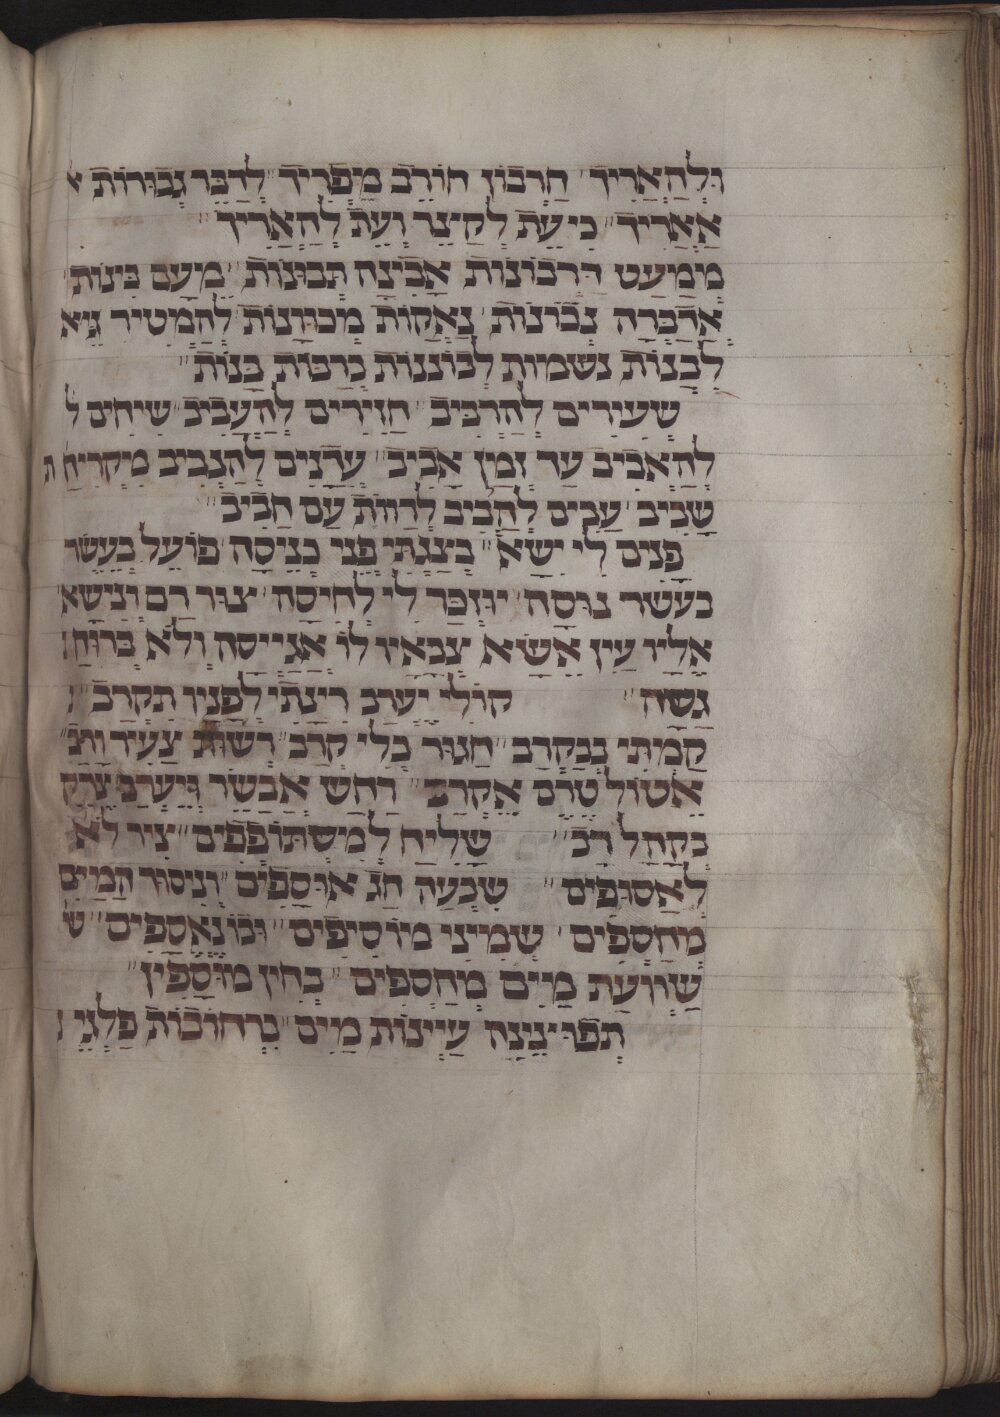 וּלְהַאֲרִיךְ חֶרְבוֹן חוֹרֶב מַפְרִיךְ לְדַבֵּר גְבוּרוֹת א
אַאֲרִיךְ כִּי עֵת לְקַצֵר וְעֵת לְהַאֲרִיךְ
מִמְעַט דַרְבוֹנוֹת אָבִינָה תְבוּנוֹת מֵעַם בִּינוֹת
אֲדַבְּרָה נְכוֹנוֹת נַאֲקוֹת מְכוּוָנוֹת לְהַמְטִיר גֵיא
לִבְנוֹת נְשָׁמוֹת לְכוֹנְנוֹת כְרַבּוֹת בָּנוֹת
שְׂעִירִים לְהַרְבִּיב חֲזִיזִים לְהַעֲבִיב שִׂיחִים ל
לְהַאֲבִיב עַד זְמַן אָבִיב עֲדָנִים לְהַצְבִיב מִקְרִיחַ ת
שָׁבִיב עָבִים לְהָבִיב לְרַוּוֹת עַם חָבִיב
פָּנִים לִי יִשָׂא בְיִצְגָתִי פָנַי כְנִיסָה פּוֹעֵל בַּעֲשֶׂר
כְעֶשֶׂר נוּסָה יוּזְכַּר לִי לְחִיסָה צוּר רָם וְנִישָׂא
אֵלָיו עַיִן אֶשָׂא צְבָאָיו לוֹ אֲגַיְיסָה וְלֹא בְרוּחַ
גַסָה קוֹלִי יֶעֱרַב רִינָתִי לְפָנָיו תִקְרַב
קַמְתִּי בְקֶרֶב חֲגוּר בְלִי קְרָב רְשׁוּת צָעִיר וָרַב
אֶטוֹל טֶרֶם אֶקְרַב רַחַשׁ אֲבַשֵׂר וְיֶעֱרַב צֶדֶק
בְּקָהָל רַב שָׁלִיחַ לְמִשְׁתּוֹפְפִים צִיר לֹא
לְאַסוּפִים שִׁבְעָה חַג אוֹסְפִים וְנִיסוּךְ הַמַיִם
מְחַסְפִים שְׁמִינִי מוֹסִיפִים וּבוֹ נֶאֱסָפִים ש
שַׁוְועַת מַיִם מְחַסְפִים בְּהִין מוּסָפִין
תְּפוּצֶינָה עֲיָינוֹת מַיִם בִּרְחוֹבוֹת פַּלְגֵי